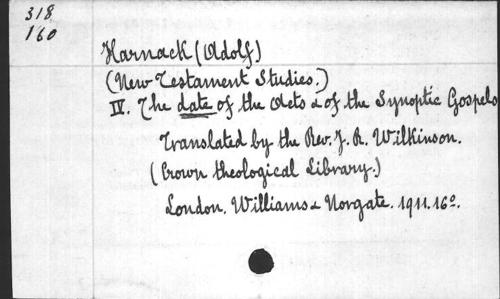 318
160
Harnack (Adolf)
(New Testament Studies.)
IV. The date of the Acts & of the Synoptic Gospels
Translated by the Rev. J. R. Wilkinson.
(Crown theological Library.)
London. Williams & Norgate. 1911. 16º.